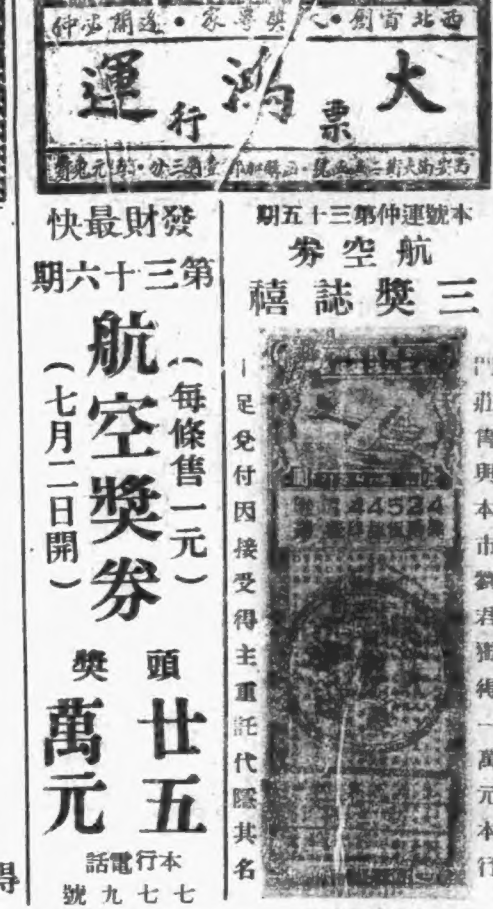 西北首創•獎專家•逢開必仲
大鴻運
票行
本號運仲第三十五期
航空券
三獎誌禧
門莊售與本市劉君獨得一萬元本行
44524
足兌付因接受得主重託代隱其名
發財最快
第三十六期
（每條售一元）
航空獎券
（七月二日開）
頭獎
廿五
萬元
本行電話
七七九號
得